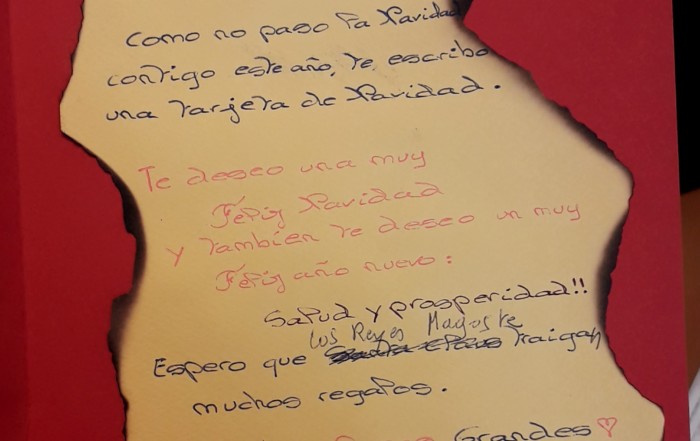 Como no paso la Navidad
contigo este año, te escribo
una tarjeta de Navidad.
Te deseo una muy
Feliz Navidad
y también te deseo un muy
Feliz año nuevo:
Salud y prosperidad!!
los Reyes Magos te
Espero que traigan
muchos regalos.
Grandes